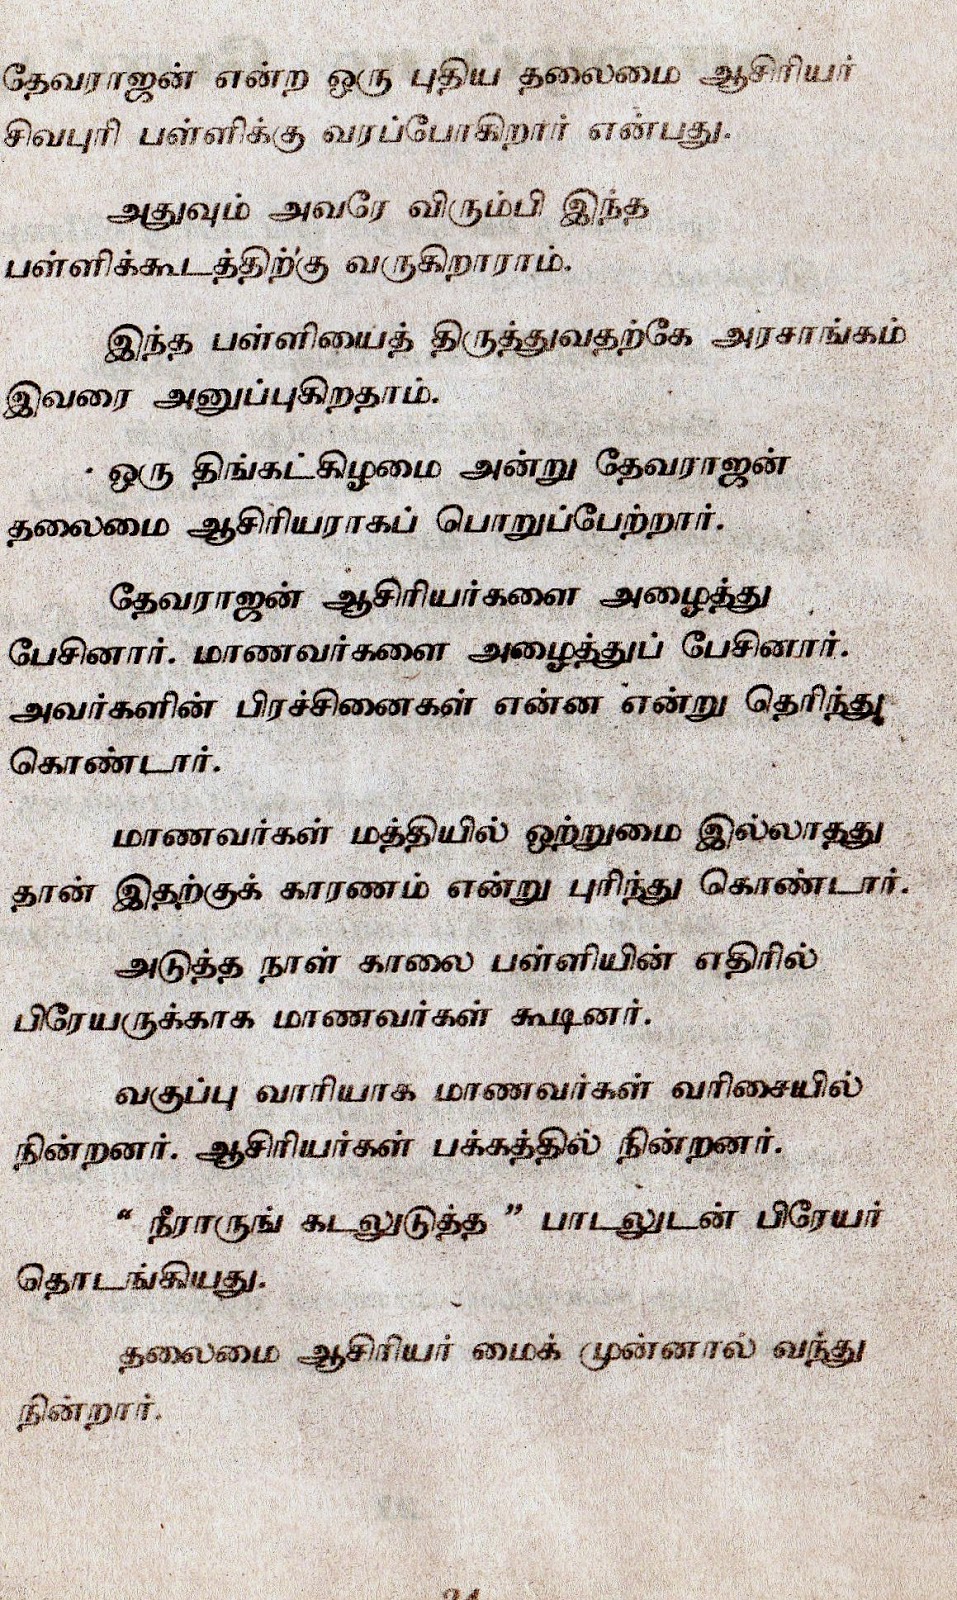 தேவராஜன் என்ற ஒரு புதிய தலைமை ஆசிரியர்
சிவபுரி பள்ளிக்கு வரப்போகிறார் என்பது.
அதுவும் அவரே விரும்பி இந்த
பள்ளிக்கூடத்திற்கு வருகிறாராம்.
இந்த பள்ளியைத் திருத்துவதற்கே அரசாங்கம்
இவரை அனுப்புகிறதாம்.
ஒரு திங்கட்கிழமை அன்று தேவராஜன்
தலைமை ஆசிரியராகப் பொறுப்பேற்றார்.
தேவராஜன் ஆசிரியர்களை அழைத்து
பேசினார். மாணவர்களை அழைத்துப் பேசினார்.
அவர்களின் பிரச்சினைகள் என்ன என்று தெரிந்து
கொண்டார்.
மாணவர்கள் மத்தியில் ஒற்றுமை இல்லாதது
தான் இதற்குக் காரணம் என்று புரிந்து கொண்டார்.
அடுத்த நாள் காலை பள்ளியின் எதிரில்
பிரேயருக்காக மாணவர்கள் கூடினர்.
வகுப்பு வாரியாக மாணவர்கள் வரிசையில்
நின்றனர். ஆசிரியர்கள் பக்கத்தில் நின்றனர்.
“ நீராருங் கடலுடுத்த ” பாடலுடன் பிரேயர்
தொடங்கியது.
தலைமை ஆசிரியர் மைக் முன்னால் வந்து
நின்றார்.